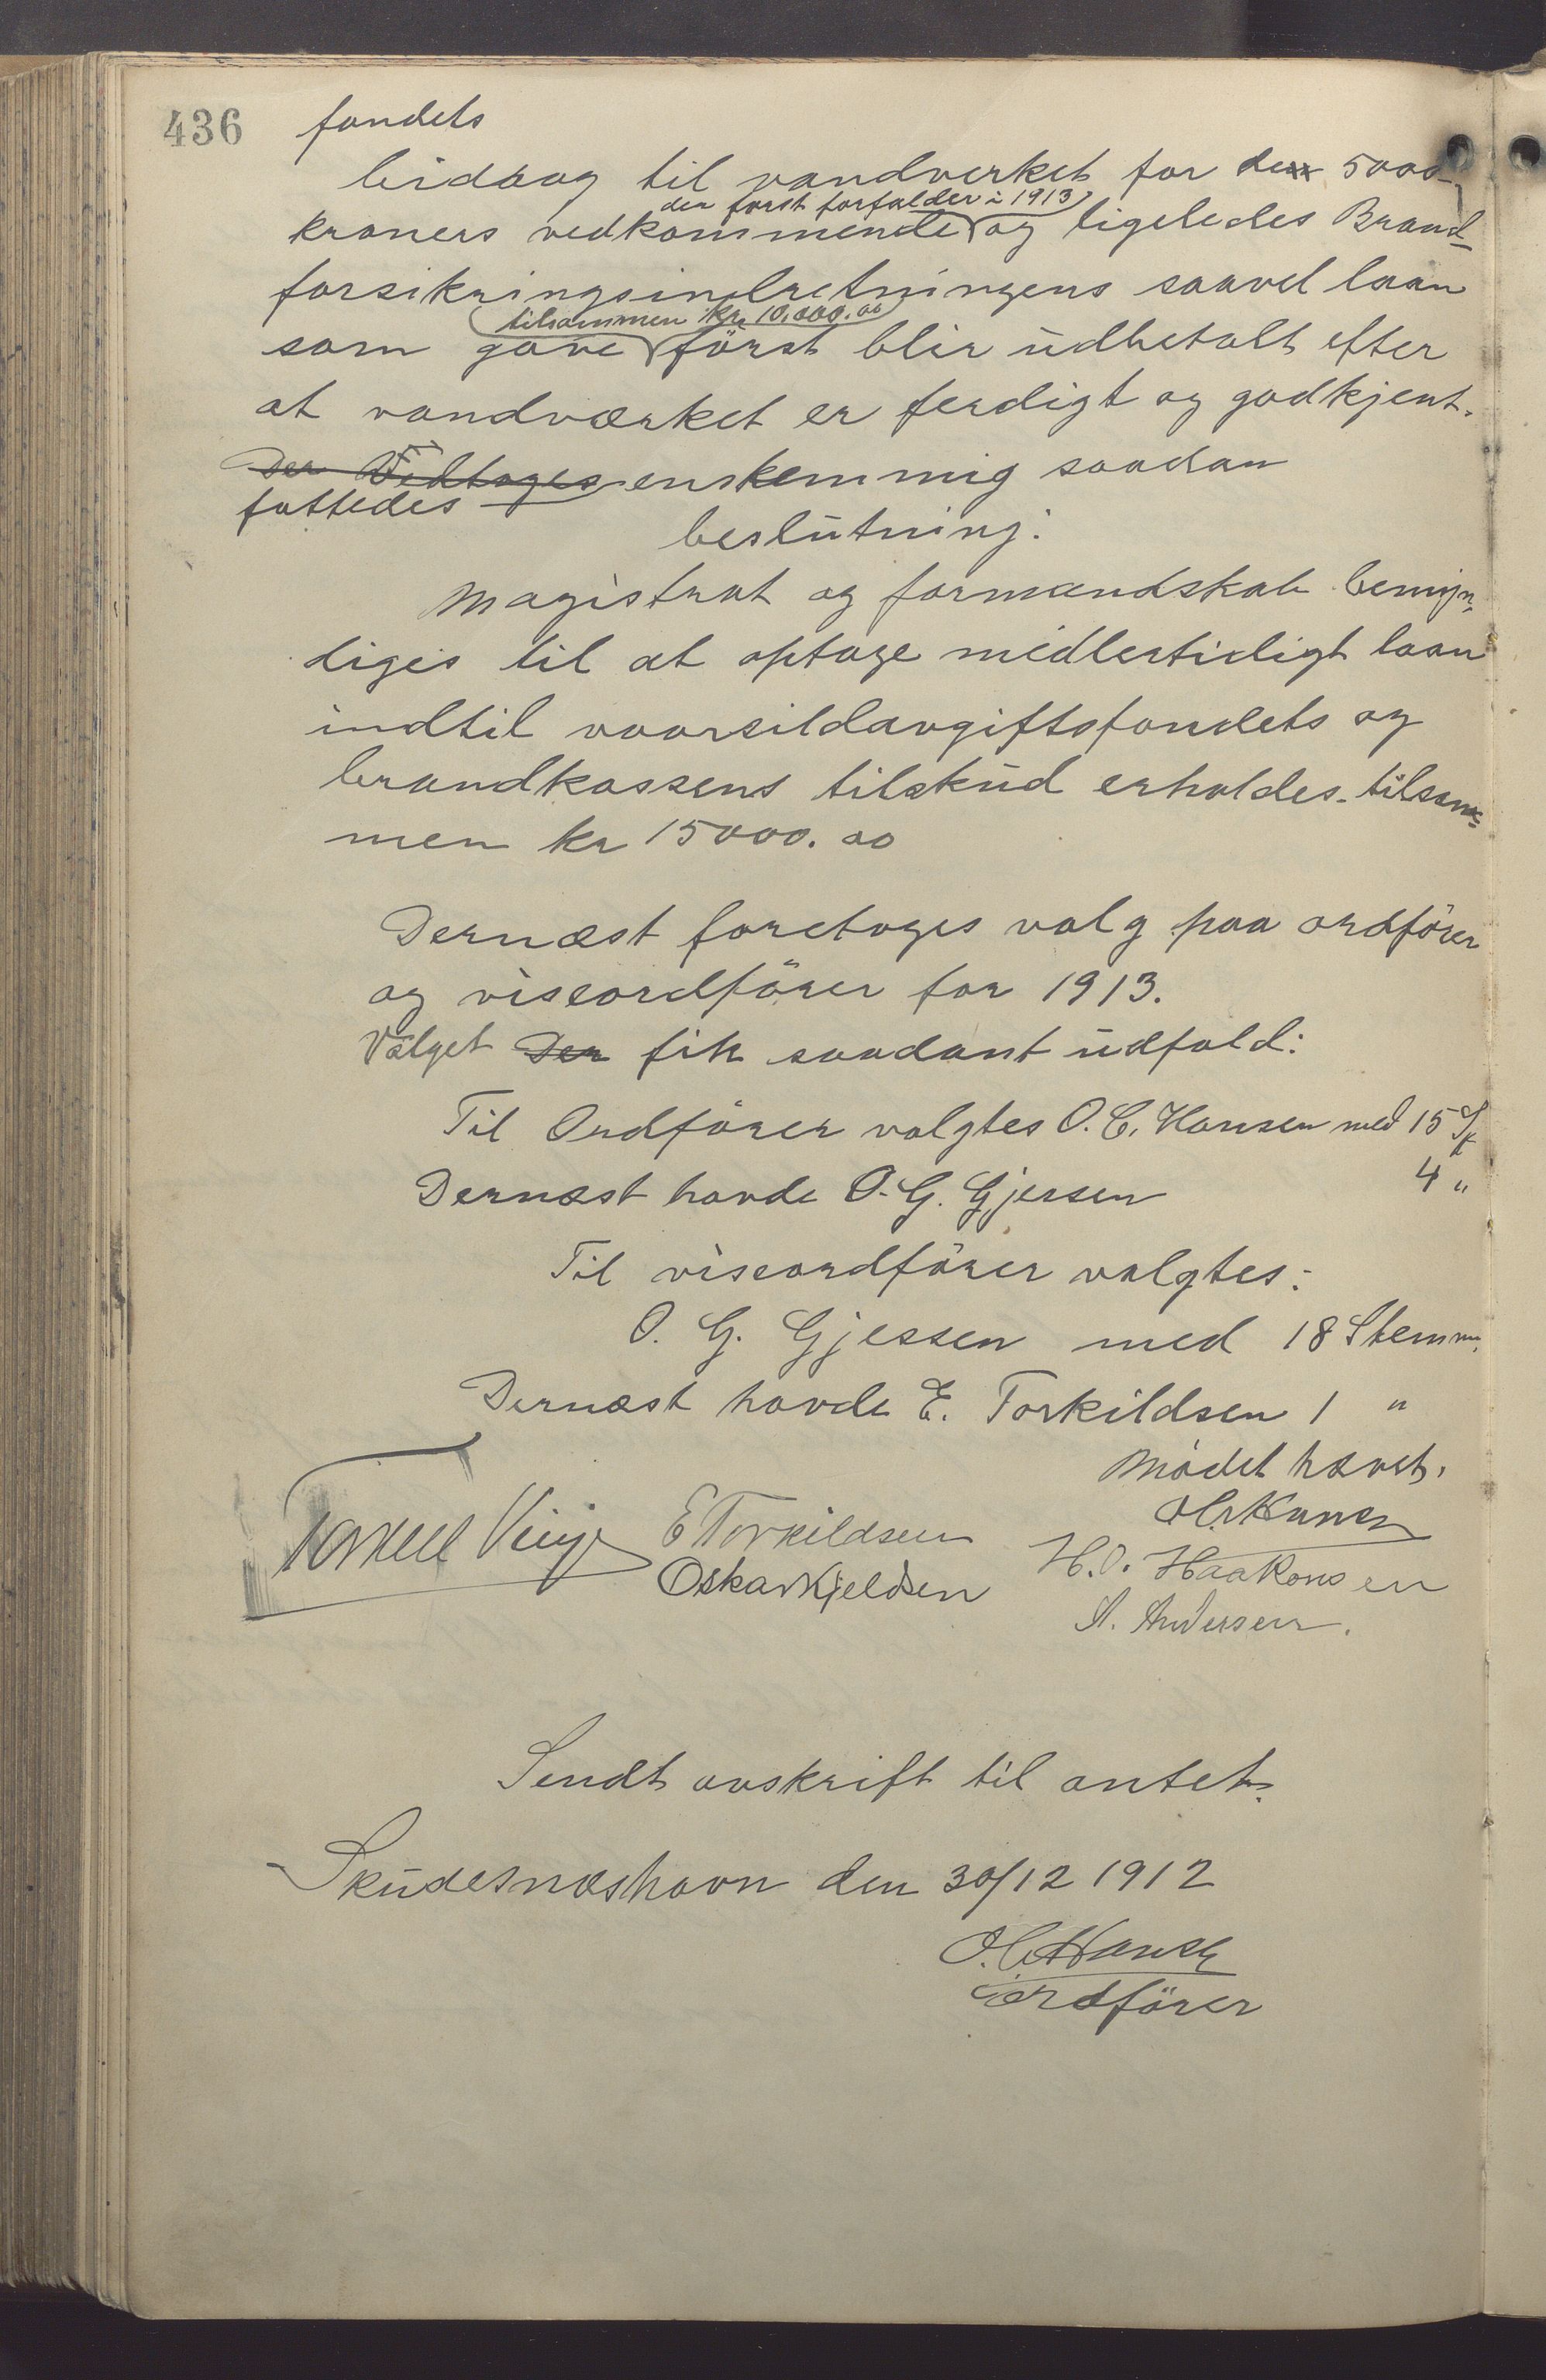 436 fondets
bidrag til vandverket for den 5000
der først forfalder i 1913
kroners vedkommende og ligeledes Brand-
forsikringsindretningens saavel laan
tilsammen kr. 10.000.00
som gave först blir udbetalt efter
at vandværket er ferdigt og godkjent.
Der Vedtoges enskemmig saadan
fattedes
beslutning:
Magistrat og formandskab bemyn-
diges til at optage midlertidigt laan
indtil vaarsildavgiftsfondets og
brandkassens tilskud erholdes. tilsam-
men kr 15000.00
Dernæst foretoges valg paa ordförer
og viseordförer for 1913.
Valget Der fik saadant udfald:
Til Ordförer valgtes O. C. Hansen med 15 St
Dernæst havde O. G. Gjersen 4 "
Til viseordförer valgtes:
O. G. Gjessen med 18 Stemm.
Dernæst havde E. Torkildsen 1 "
Mödet hævet.
O. C. Hansen
Torkell Vinje E Torkildsen
H. O. Haakonsen
Oskar Kjeldsen
A. Andersen.
Sendt avskrift til amtet.
Skudesnæshavn den 30/12 1912
O. C. Hansen
ordförer